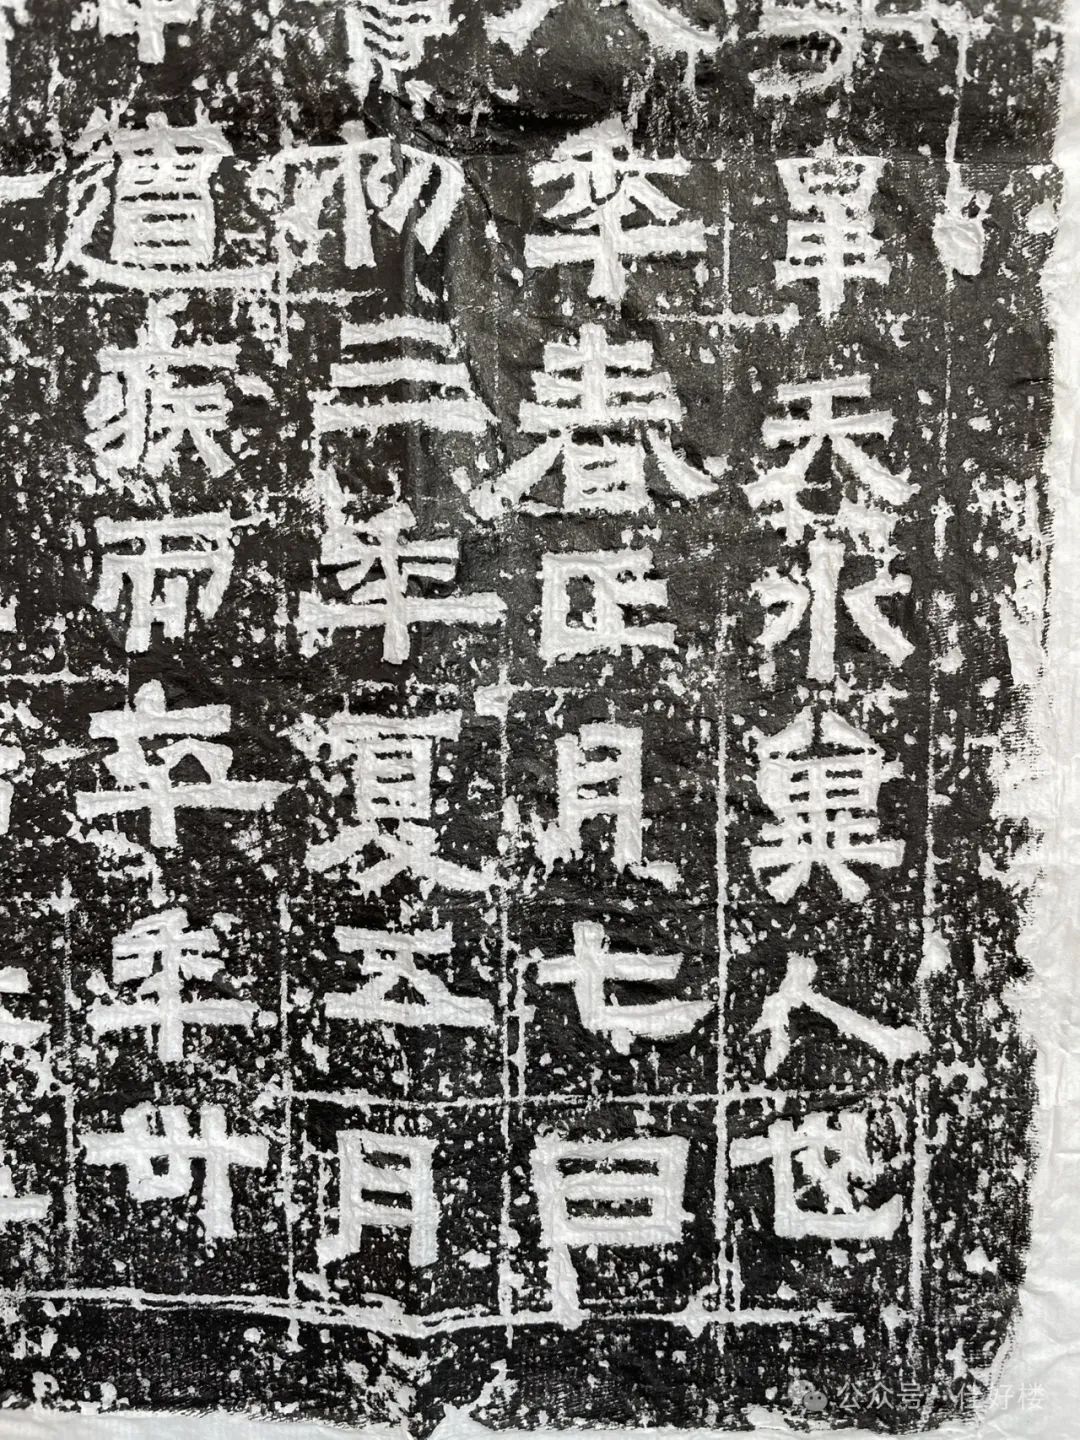 天水冀人也
秊春正月七日
初三年夏五月
遭疾而卒年卅
公众号